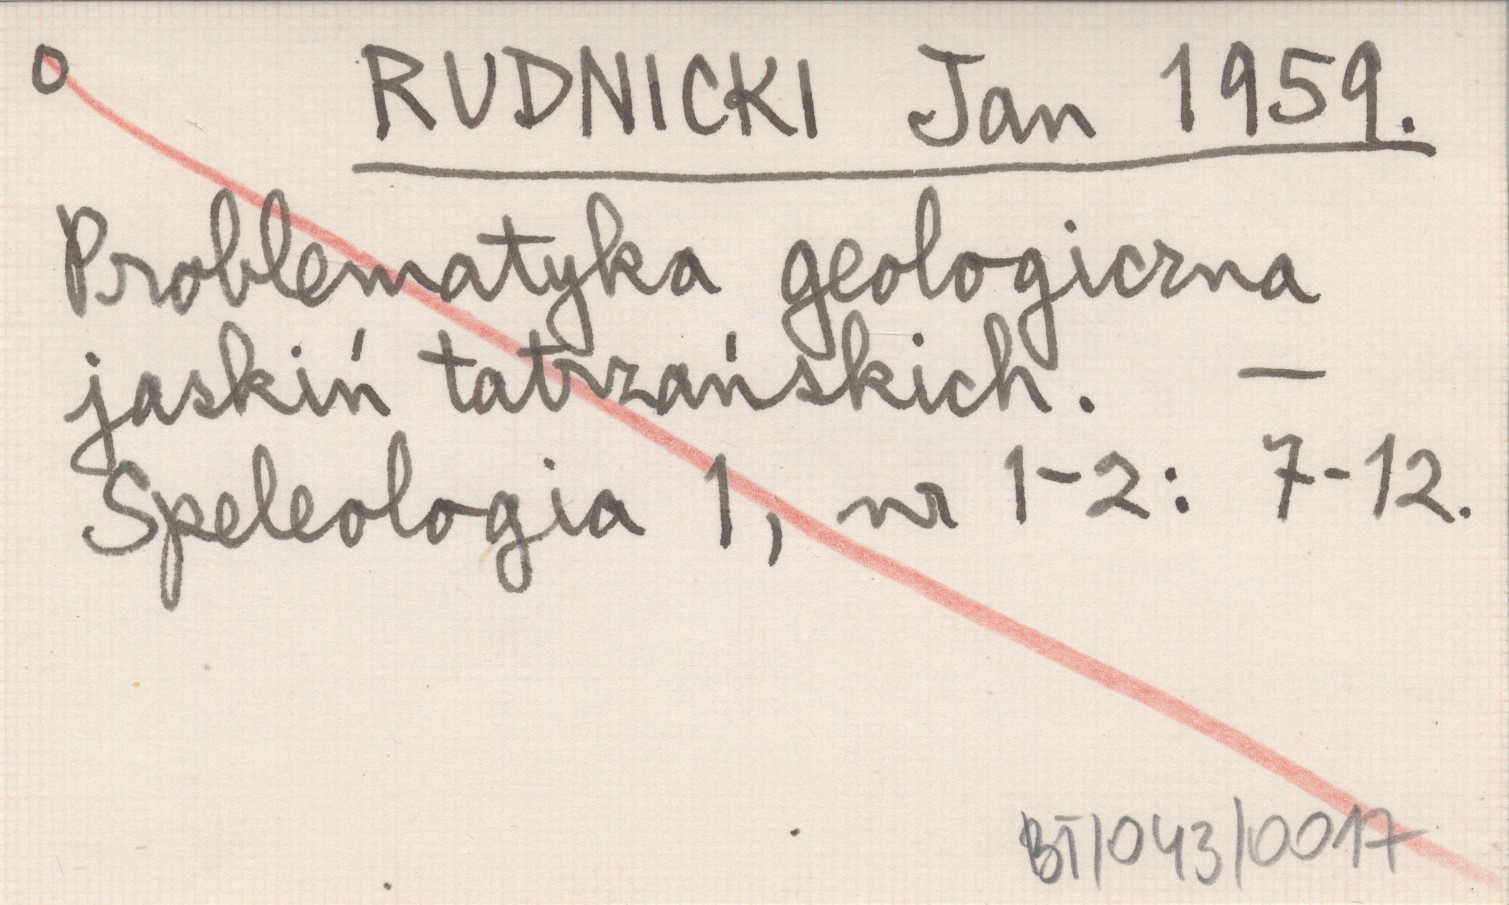 o RUDNICKI Jan 1959.
Problematyka geologiczna
jaskiń tatrzańskich. —
Speleologia 1, nr 1-2: 7-12.
BT/043/0017